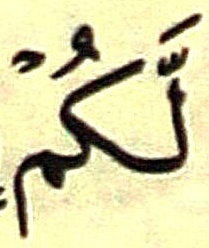 لَّكُمْ